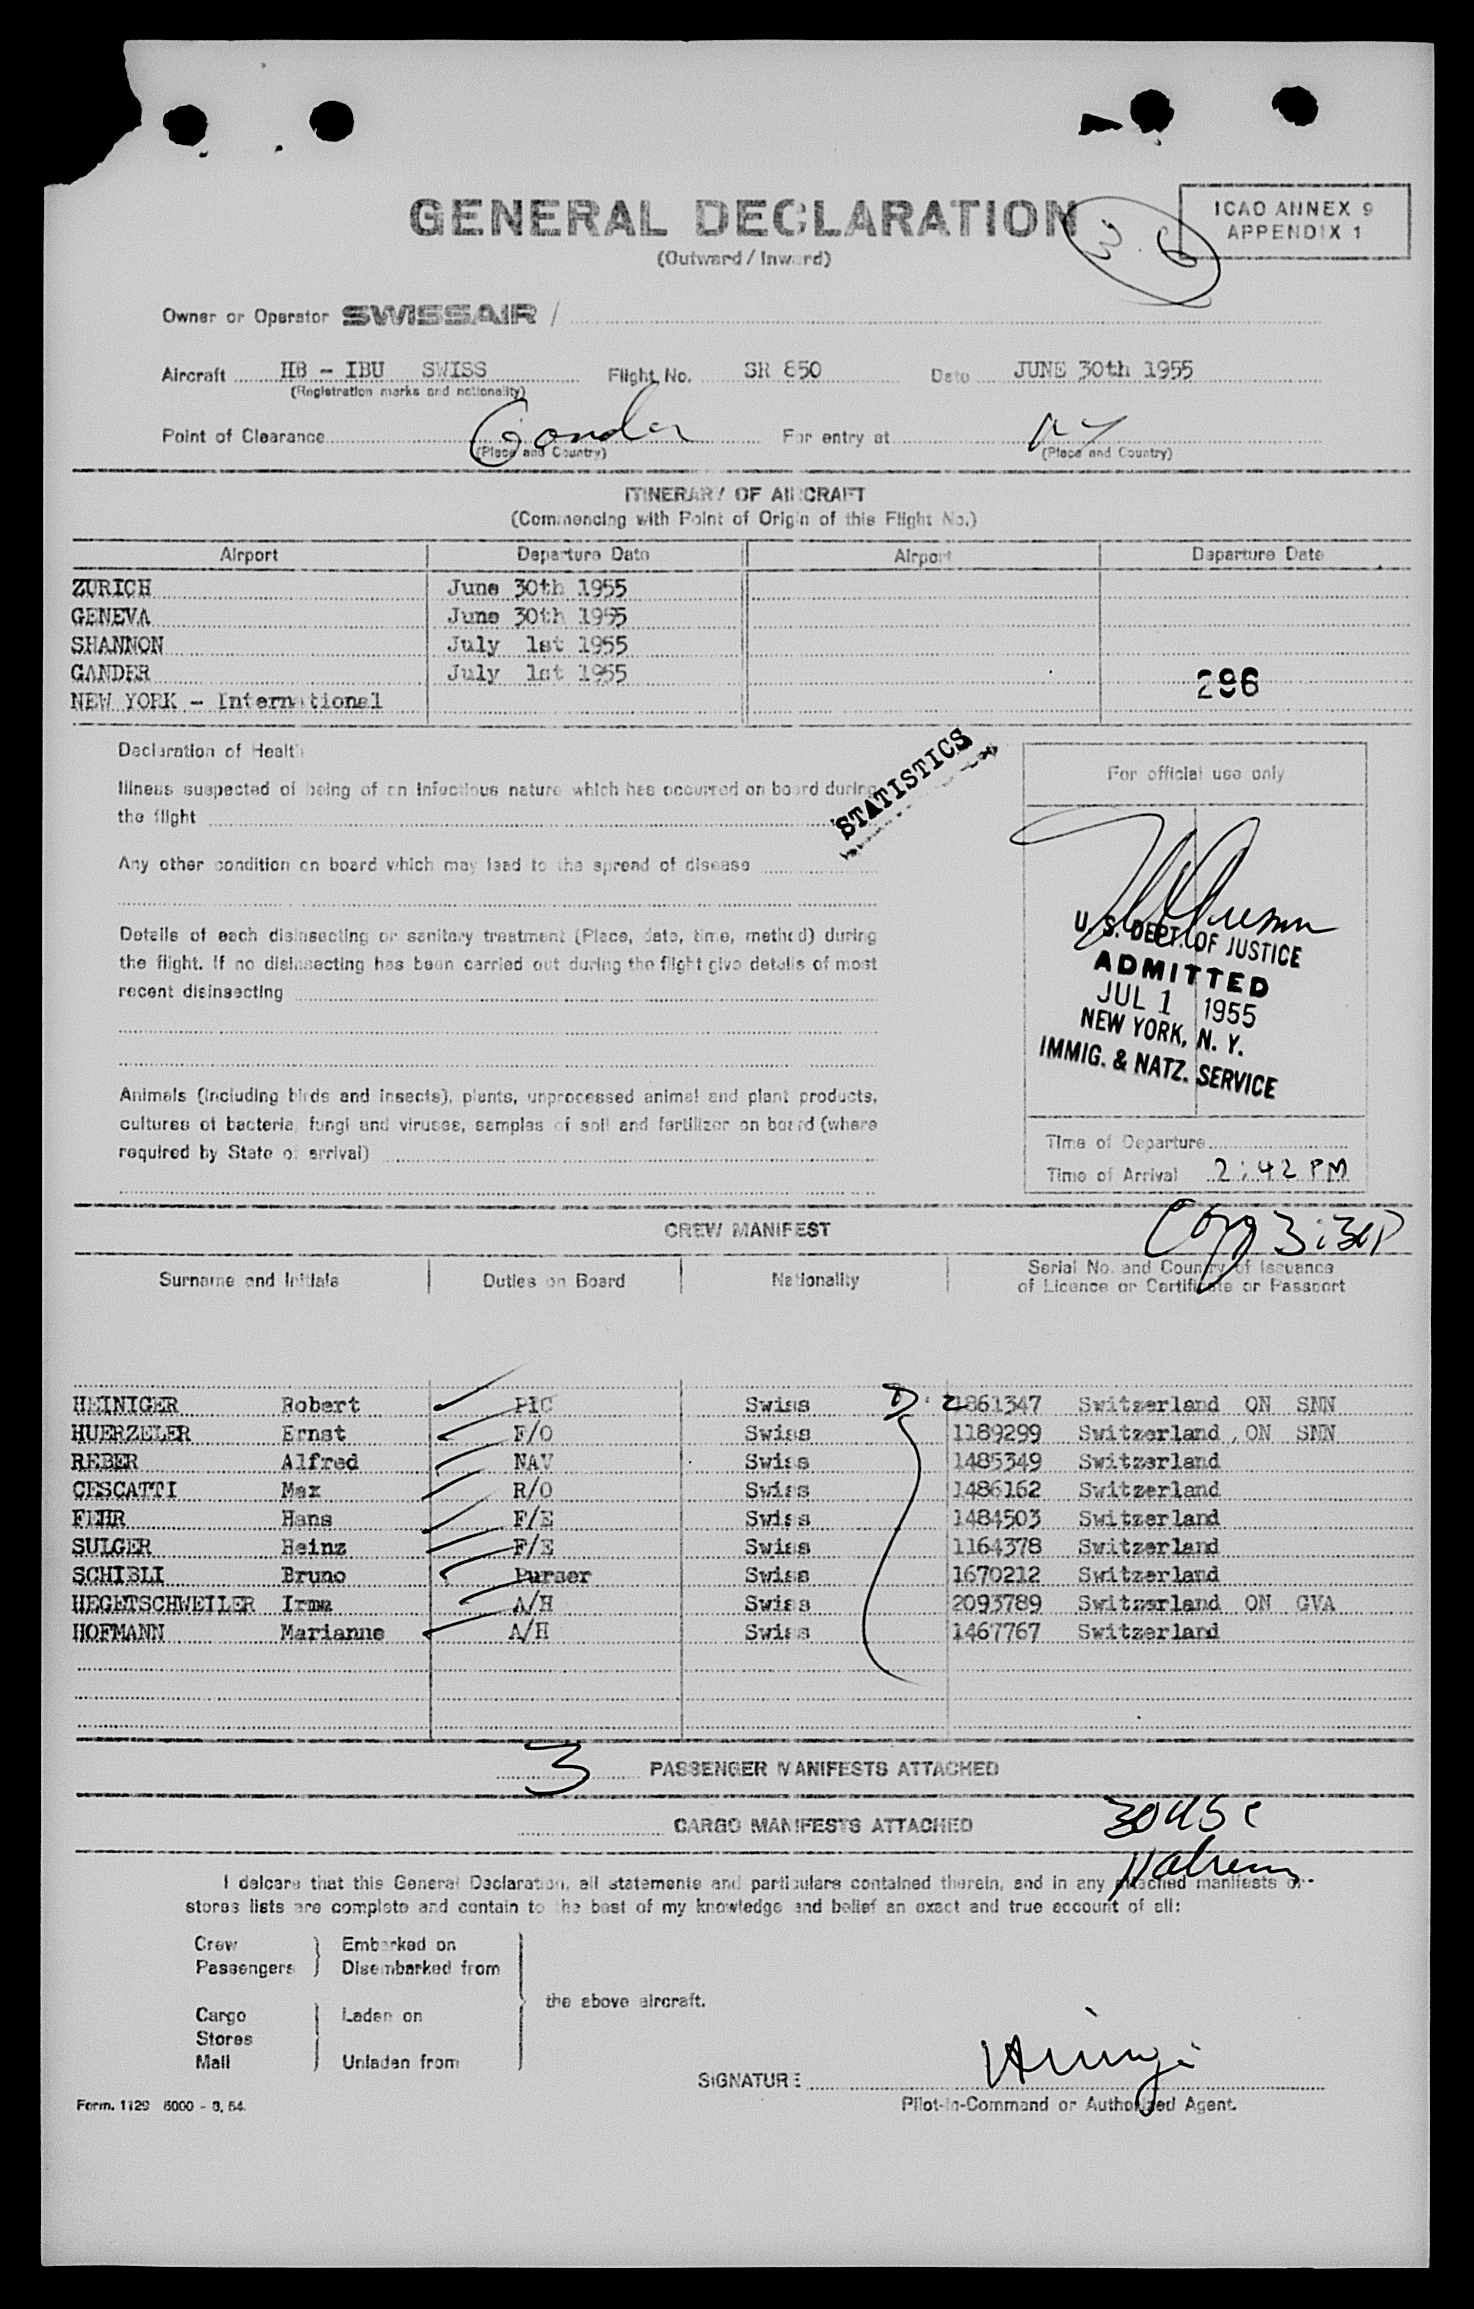 GENERAL DECLARATION
(Outward / Inward)
ICAO ANNEX 9
APPENDIX 1
Owner or Operator SWISSAIR /
Aircraft HB - IBU SWISS Flight No. SR 850 Date JUNE 30th 1955
(Registration marks and nationality)
Point of Clearance Gander For entry at NY
(Place and Country) (Place and Country)
ITINERARY OF AIRCRAFT
(Commencing with Point of Origin of this Flight No.)
Airport Departure Date Airport Departure Date
ZURICH June 30th 1955
GENEVA June 30th 1955
SHANNON July 1st 1955
GANDER July 1st 1955
296
NEW YORK - International
Declaration of Health
Illness suspected of being of an infectious nature which has occurred on board during
the flight
STATISTICS
Any other condition on board which may lead to the spread of disease
Details of each disinsecting or sanitary treatment (Place, date, time, method) during
the flight. If no disinsecting has been carried out during the flight give details of most
recent disinsecting
Animals (including birds and insects), plants, unprocessed animal and plant products,
cultures of bacteria, fungi and viruses, samples of soil and fertilizer on board (where
required by State of arrival)
For official use only
U. S. DEPT. OF JUSTICE
ADMITTED
JUL 1 1955
NEW YORK, N. Y.
IMMIG. & NATZ. SERVICE
Time of Departure
Time of Arrival 2:42 PM
CREW MANIFEST
Surname and Initials Duties on Board Nationality Serial No. and Country of Issuance
of Licence or Certificate or Passport
HEINIGER Robert PIC Swiss D. 2 1861347 Switzerland ON SNN
HUERZELER Ernst F/O Swiss 1189299 Switzerland, ON SNN
REBER Alfred NAV Swiss 1485349 Switzerland
CESCATTI Max R/O Swiss 1486162 Switzerland
FEHR Hans F/E Swiss 1484503 Switzerland
SULGER Heinz F/E Swiss 1164378 Switzerland
SCHIBLI Bruno Purser Swiss 1670212 Switzerland
HEGETSCHWEILER Irma A/H Swiss 2093789 Switzerland ON GVA
HOFMANN Marianne A/H Swiss 1467767 Switzerland
3 PASSENGER MANIFESTS ATTACHED
CARGO MANIFESTS ATTACHED
I delcare that this General Declaration, all statements and particulars contained therein, and in any attached manifests or
stores lists are complete and contain to the best of my knowledge and belief an exact and true account of all:
Crew Embarked on
Passengers Disembarked from
the above aircraft.
Cargo Laden on
Stores
Mail Unladen from
SIGNATURE
Pilot-in-Command or Authorized Agent.
Form. 1129 6000 - 8, 54.